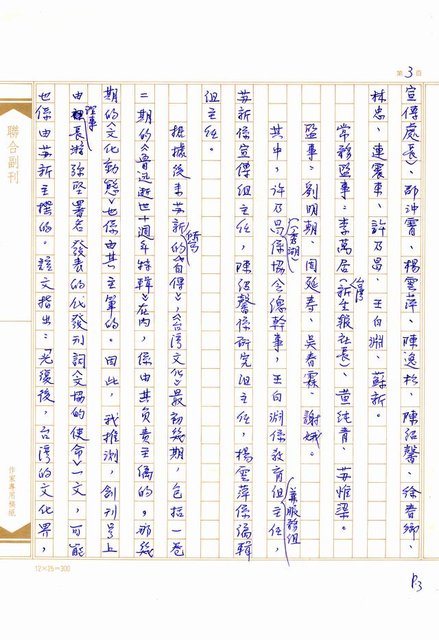 第3頁
宣傳處長)、邵沖霄、楊雲萍、陳逸松、陳紹馨、徐春卿、
林忠、連震東、許乃昌、王白淵、蘇新。
常務監事：李萬居(台灣新生報社長)、黃純青、苏惟梁。
監事：劉明朝、周延壽、吳春霖、謝娥。
其中，許乃昌(秀湖)係協会總幹事，王白淵係敎育組主任，兼服務組
苏新係宣傳組主任，陳紹馨係研究組主任，楊雲萍係編輯
組主任。
根據後來苏新的《自傳》，《台灣文化》最初幾期，包括一卷
二期的《魯迅逝世十週年特輯》在內，係由其負責主編的，那幾
期的《文化動態》也係由其主筆的。因此，我推測，創刊号上
由理事長游弥堅署名發表的代發刊詞《文協的使命》一文，可能
也係由苏新主擬的。該文指出：「光復後，台灣的文化界，
P3
聯合副刊
作家專用稿紙
12×25=300